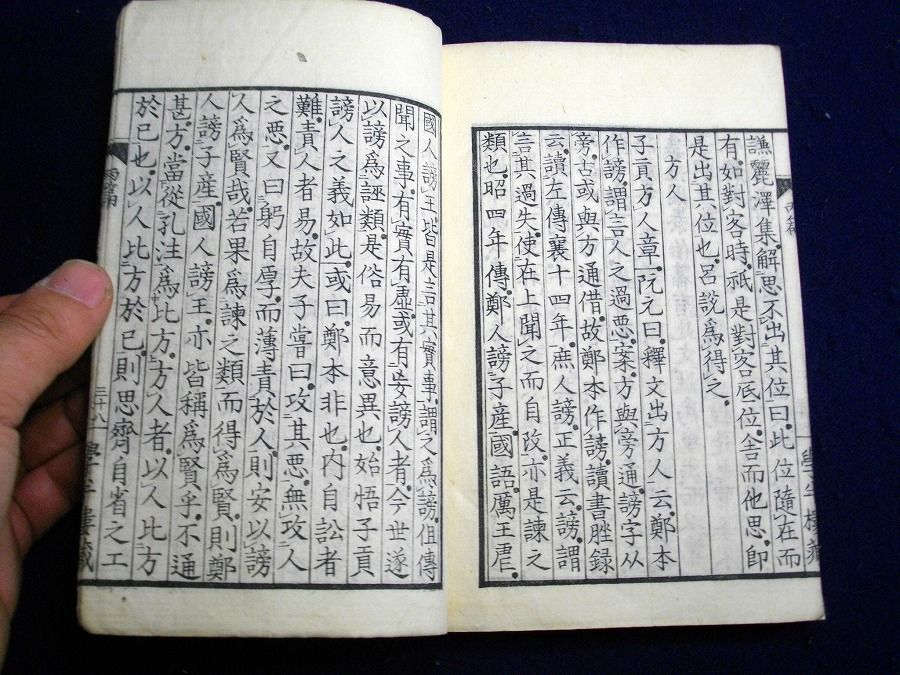 譙麗澤集解思不出其位曰此位隨在而
有如對客時祇是對客底位舍而他思即
是出其位也呂說爲得之
方人
子貢方人章阮元曰釋文出方人云鄭本
作謗謂言人之過惡案方與旁通謗字从
旁古或與方通借故鄭本作謗讀書脞錄
云讀左傳襄十四年庶人謗正義云謗謂
言其過失使在上聞之而自改亦是諫之
類也昭四年傳鄭人謗子產國語厲王虐
國人謗王皆是言其實事謂之爲謗但傳
聞之事有實有虛或有妄謗人者今世遂
以謗爲誣類是俗易而意異也始悟子貢
謗人之義如此或曰鄭本非也內自訟者
難責人者易故夫子嘗曰攻其惡無攻人
之惡又曰躬自厚而薄責於人則安以謗
人爲賢哉若果爲諫之類而得爲賢則鄭
人謗子產國人謗王亦皆稱爲賢乎不通
甚方當從孔注爲比方方人者以人比方
於己也以人比方於己則思齊自省之工
學半樓藏